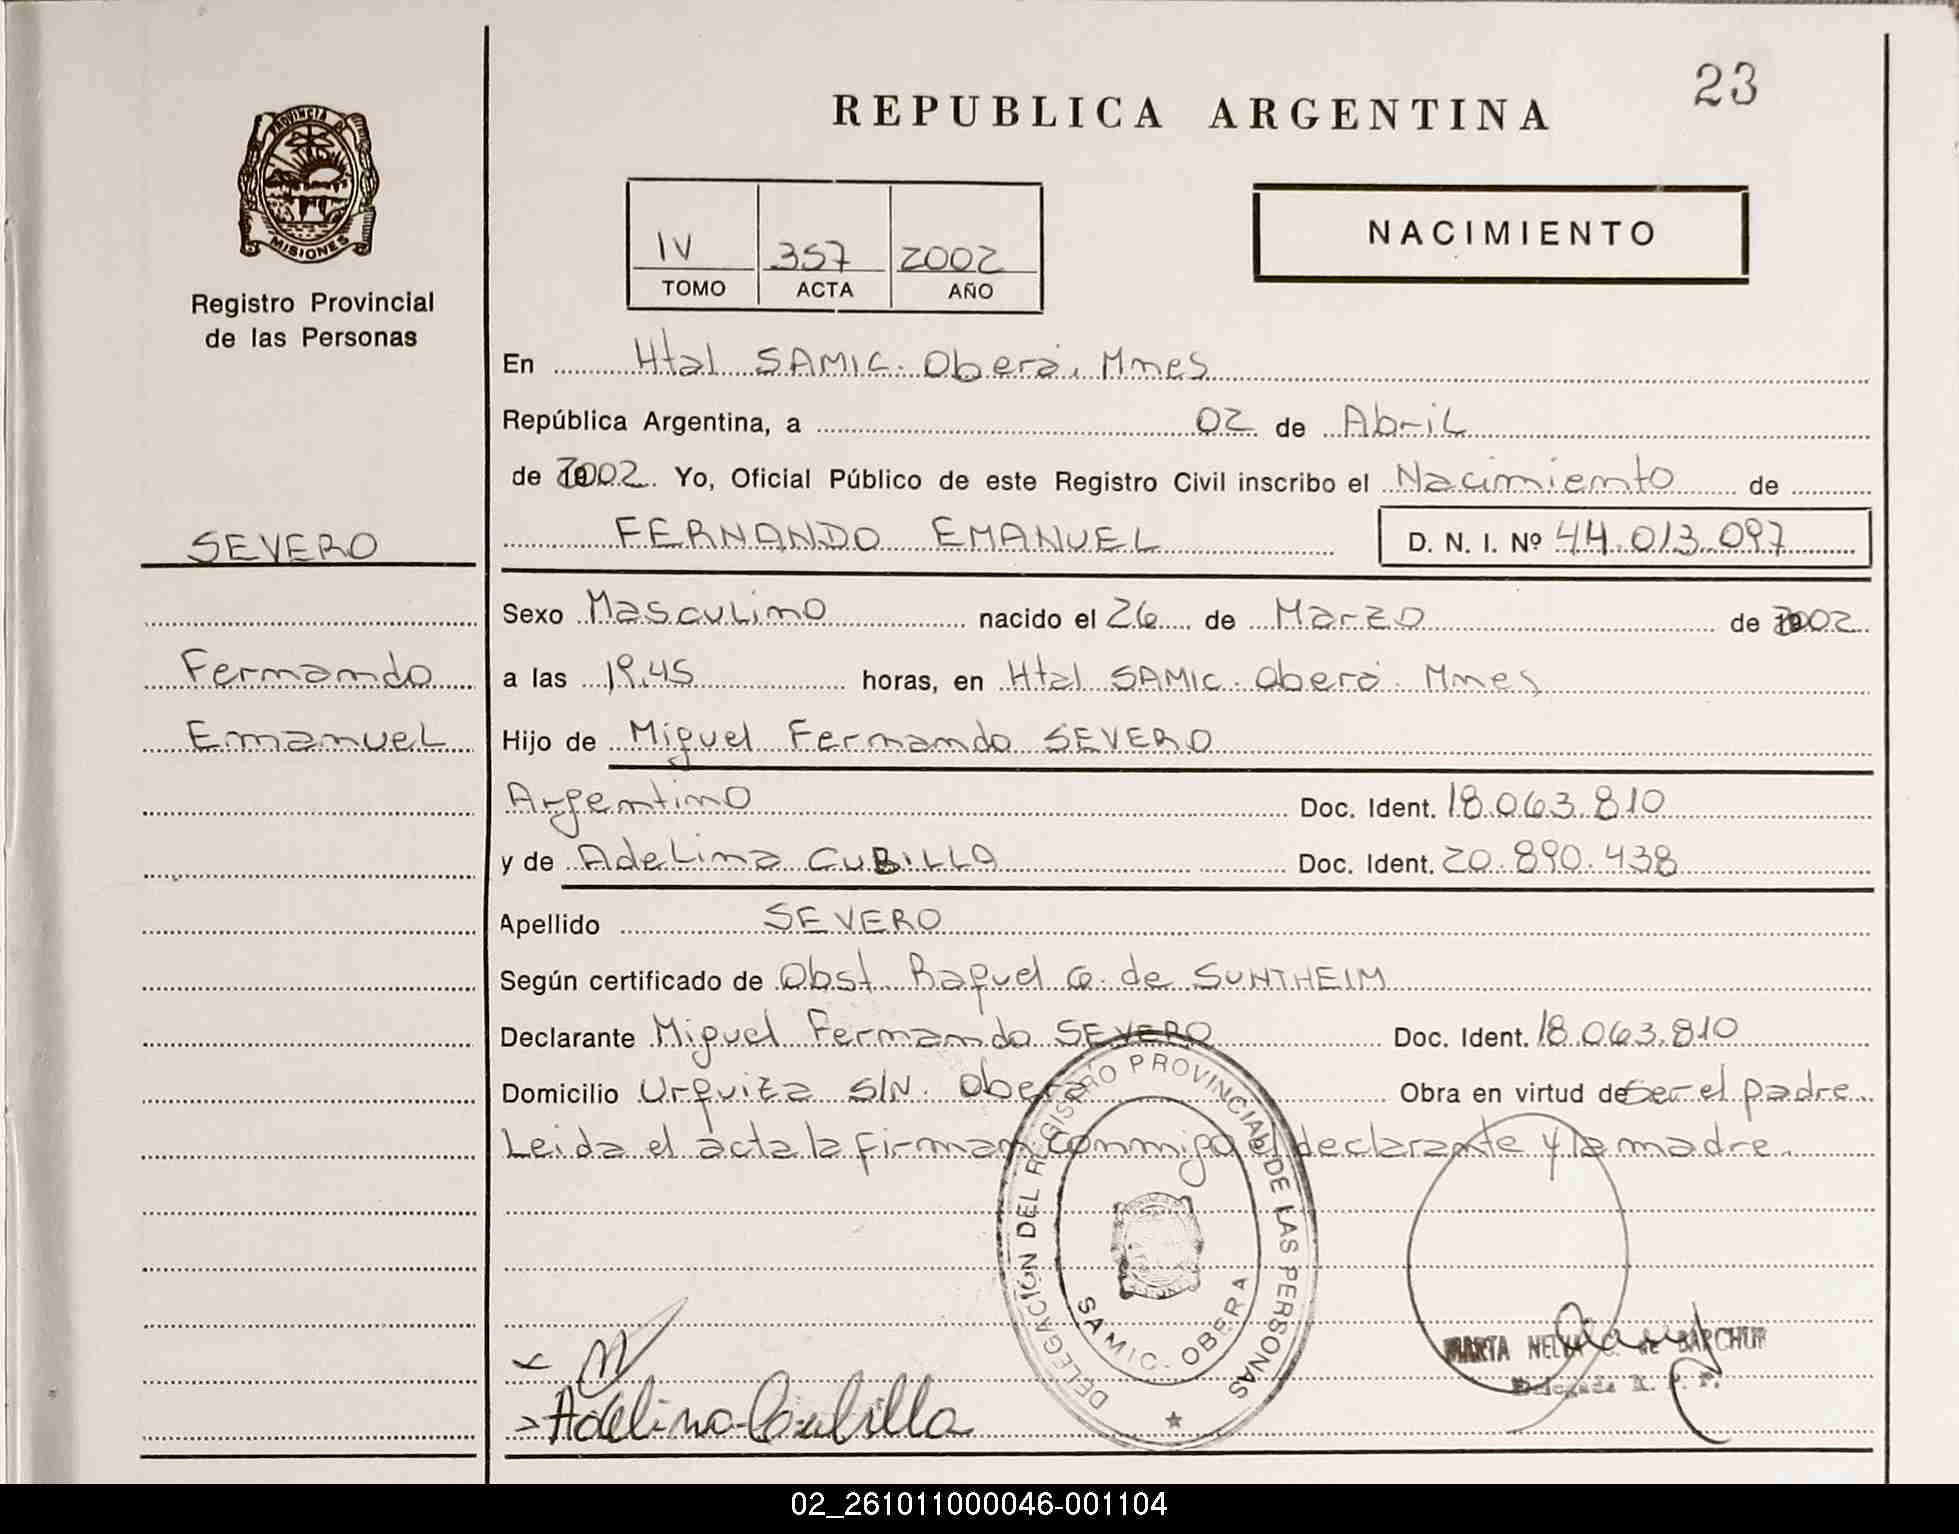 23
REPUBLICA ARGENTINA
PROVINCIA DE
MISIONES
Registro Provincial
de las Personas
NACIMIENTO
IV 357 2002
TOMO ACTA AÑO
En Htal SAMIC. Oberá. Mnes
República Argentina, a 02 de Abril
de 2002. Yo, Oficial Público de este Registro Civil inscribo el Nacimiento de
SEVERO
FERNANDO EMANUEL D. N. I. Nº 44.013.097
Sexo Masculino nacido el 26 de Marzo de 2002
Fernando
a las 19.45 horas, en Htal SAMIC. Oberá. Mnes
Emanuel
Hijo de Miguel Fernando SEVERO
Argentino Doc. Ident. 18.063.810
y de Adelina CUBILLA Doc. Ident. 20.890.438
Apellido SEVERO
Según certificado de Obst. Raquel G. de SUNTHEIM
Declarante Miguel Fernando SEVERO Doc. Ident. 18.063.810
Domicilio Urquiza S/N. Oberá Obra en virtud de ser el padre
Leida el acta la firman conmigo el declarante y la madre.
DELEGACIÓN DEL REGISTRO PROVINCIAL DE LAS PERSONAS
SAMIC. OBERA
MARTA NELIA C. de BARCHUP
Delegada R. P. P.
Adelina Cubilla
02_261011000046-001104